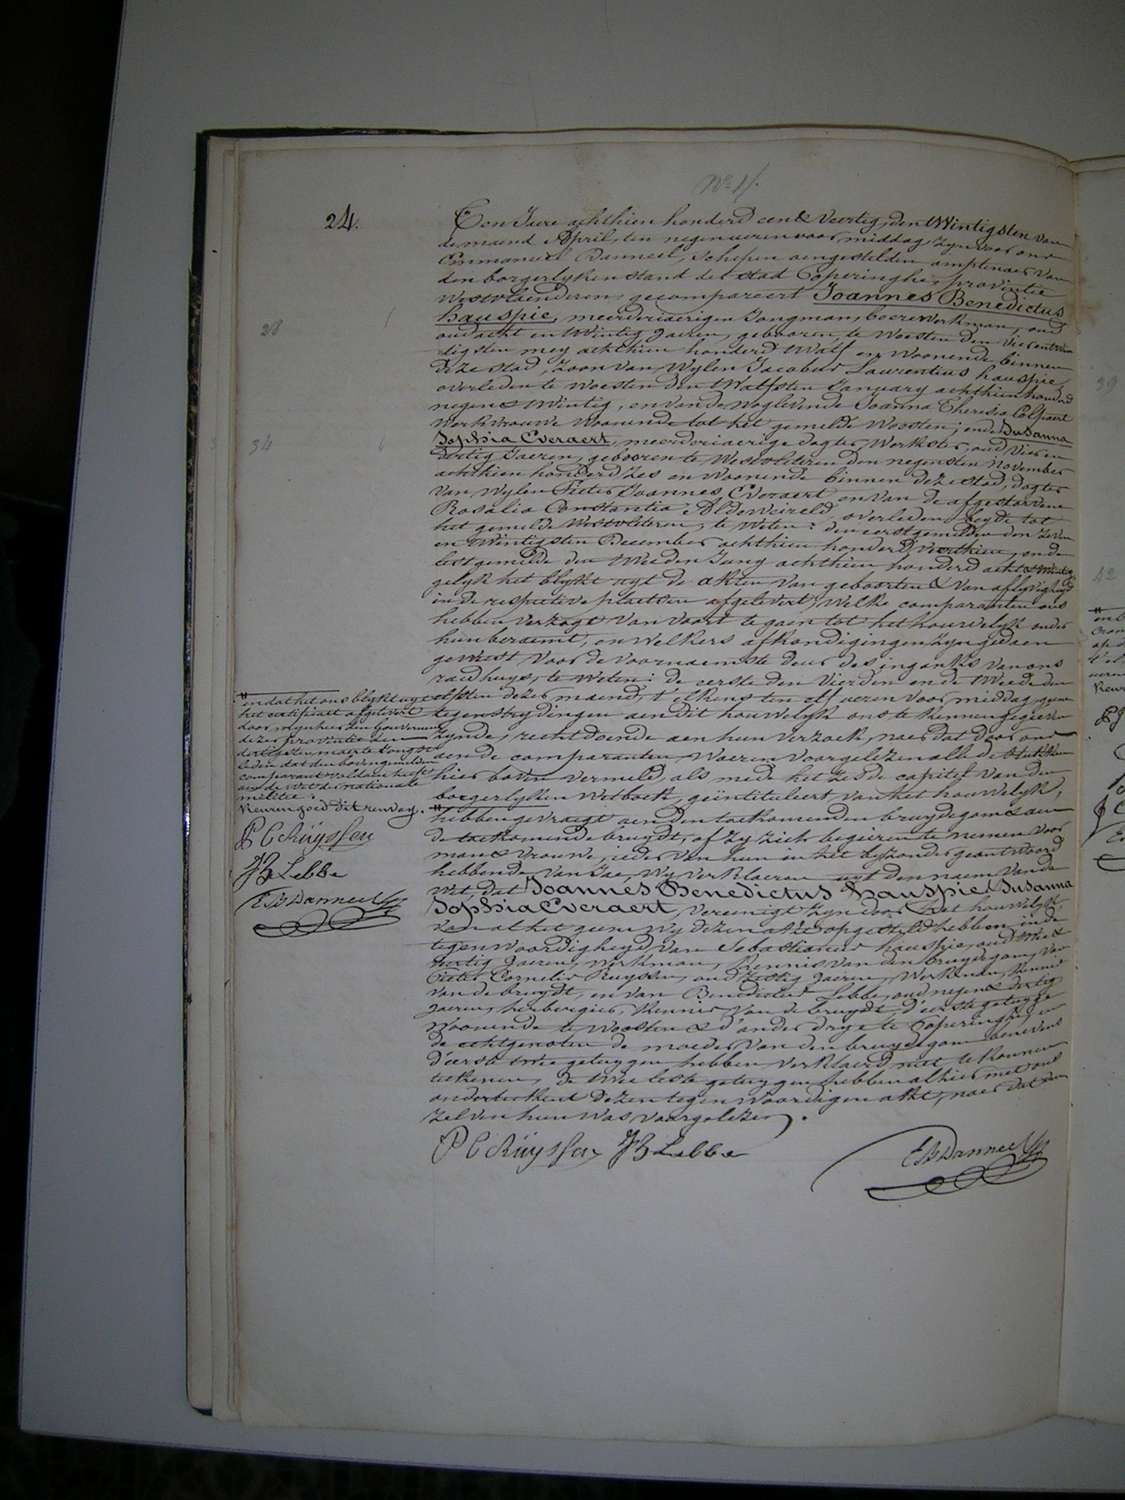 24.
Ten Jaere achthien honderd een & veertig, den twintigsten van
de maend April, ten negen uren voor middag zyn voor ons
Emmanuel Danneel, Schepen aengestelden amptenaer van
den borgerlyken stand der stad Poperinghe, provintie
Westvlaenderen, gecompareert Joannes Benedictus
hauspie, meerderjaerigen Jongman, boerewerkman, oud
oud acht en twintig Jaeren, gebooren te Woesten den vierentwin
tigsten mey achthien honderd twalf en woonende binnen
deze stad, zoon van wylen Jacobus Laurentius hauspie,
overleden te Woesten den twalfsten January achthien honderd
negen & twintig, en van de nog levende Joanna Theresia Colpaert
werkvrouwe woonende tot het gemelde Woesten; ende Susanna
Sophia Everaert, meerderjaerige dogter, werkster, oud vier en
dertig Jaeren, gebooren te Westvleteren den negensten november
achthien honderd zes en woonende binnen deze stad, dogter
van wylen Pieter Joannes Everaert en van de afgestorvene
Rosalia Constantia Deldeweireld, overleden beyde tot
het gemelde Westvleteren, te weten: den eerstgemelden den zeven
en twintigsten December achthien honderd veerthien, en de
lestgemelde den tweeden Juny achthien honderd acht & twintig
gelyk het blykt uyt de akten van geboorten & van aflyvigheyd
in de respective plaetsen afgelevert, welke comparanten ons
hebben verzogt van voort te gaen tot het houwelyk onder
hun beraemt, en welkers afkondigingen zyn gedaen
geweest voor de voornaemste deur des ingangs van ons
raedhuys, te weten: de eerste den vierden en de tweede den
elfsten dezer maend, t'elkens ten elf uren voor middag, geene
tegenstrydigheden aen dit houwelyk ons te kennen gegeven
zynde, recht doende aen hun verzoek, naer dat door ons
aen de comparanten waeren voorgelezen alle de stukken
hier boven vermeld, als mede het zesde capitel van den
borgerlyken Wetboek, geïntituleert van het houwelyk,
hebben gevraegt aen den toekomenden bruydegom & aen
de toekomende bruydt, of zy zich begeeren te nemen voor
man & vrouwe, ieder van hun in het byzonder geantwoord
hebbende van Jae, wy verklaeren uyt den naem van de
wet, dat Joannes Benedictus hauspie, Susanna
Sophia Everaert, vereenigt zyn door het houwelyk
van al het gene wy dezen akt opgesteld hebben, in de
tegenwoordigheyd van Sebastianus hauspie, oud drie &
veertig Jaeren, werkman, kennis van den bruydegom, van
Pieter Cornelis Ruyssen, oud zestig Jaeren, werkman, kennis
van de bruydt, en van Benedictus Lebbe, oud negen & dertig
Jaeren, herbergier, kennis van de bruydt, d'eerste getuyge
woonende te Woesten & d'ander drye te Poperinghe; en
de echtgenoten, de moeder van den bruydegom benevens
d'eerste twee getuygen hebben verklaerd niet te konnen
teekenen, de twee leste getuygen hebben alhier met ons
onderteekent dezen tegenwoordigen akt, naer dat den
zelven hun was voorgelezen.
P C Ruyssen JB Lebbe
E Danneel
en dat het ons blykt uyt
het certificaet afgelevert
door mynheer den Gouverneur
dezer provintie den
dertigsten maerte Jongst
leden dat den bovengemelden
comparant voldaen heeft
aen de wet der nationale
militie;
Keure goed dit renvoy.
P C Ruyssen
JB Lebbe
E Danneel
28
34